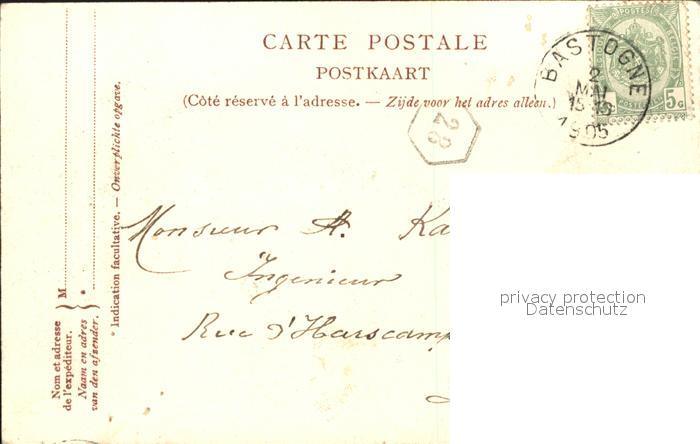 CARTE POSTALE
POSTKAART
(Côté réservé à l'adresse. — Zijde voor het adres alleen.)
BASTOGNE
2
MAI
1905
POSTES
5 C
28
Monsieur A. Ka
Ingenieur
Rue d'Harscamp
privacy protection
Datenschutz
* Indication facultative. — Onverplichte opgave.
M
*
Nom et adresse
de l'expéditeur.
Naam en adres
van den afzender.